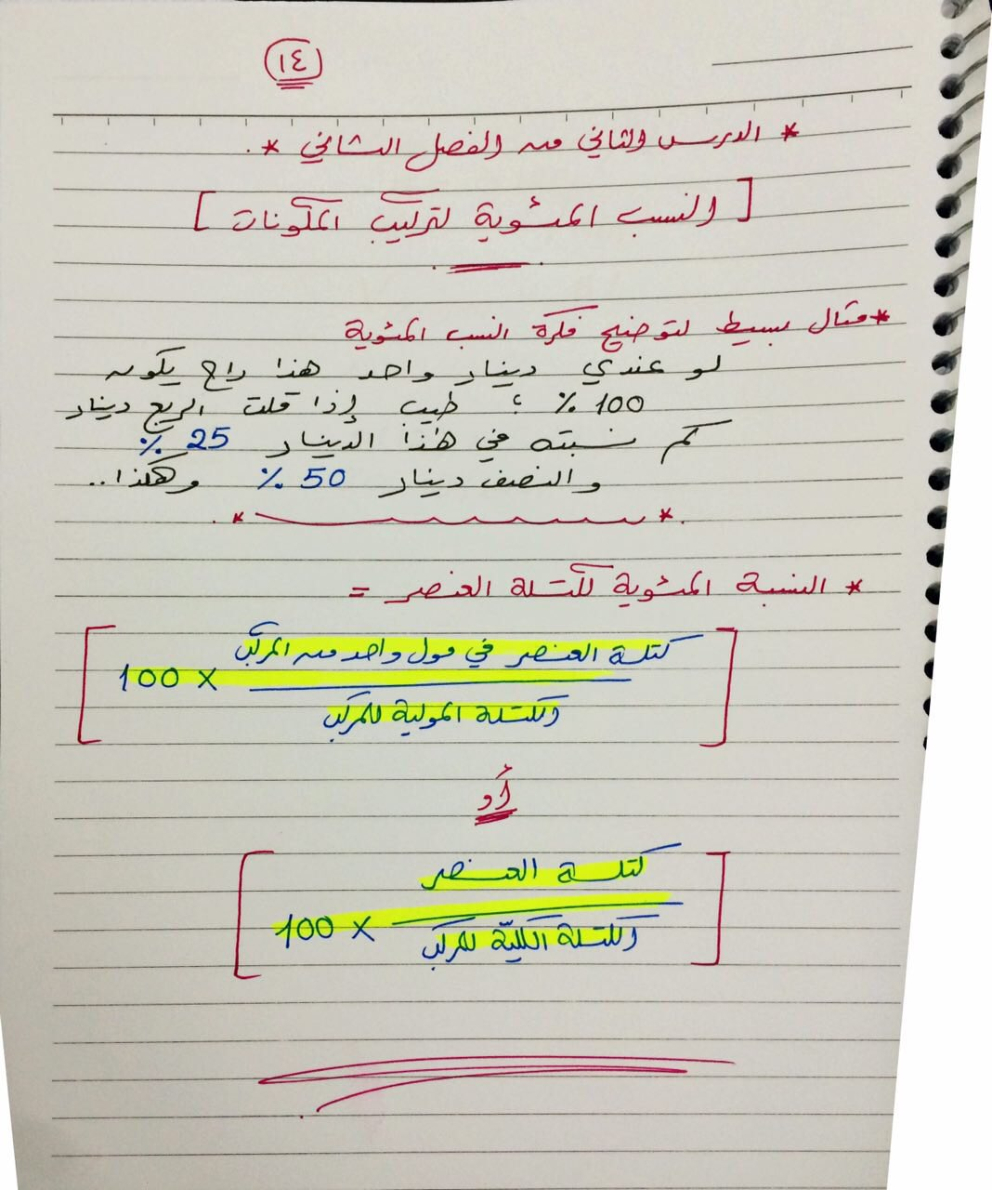 ١٤
* الدرس الثاني من الفصل الثاني *
[ النسب المئوية لتركيب المكونات ]
* مثال بسيط لتوضيح فكرة النسب المئوية
لو عندي دينار واحد هذا راح يكون
100 % ؛ طيب إذا قلت الربع دينار
كم نسبته في هذا الدينار 25 %
والنصف دينار 50 % وهكذا..
* النسبة المئوية لكتلة العنصر =
كتلة العنصر في مول واحد من المركب
100 ×
الكتلة المولية للمركب
أو
كتلة العنصر
100 ×
الكتلة الكلية للمركب